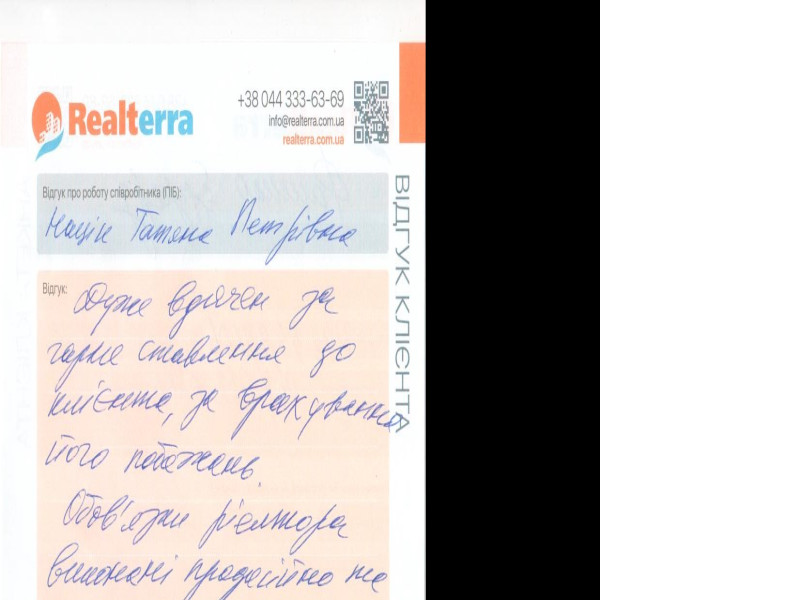 Realterra
+38 044 333-63-69
info@realterra.com.ua
realterra.com.ua
ВІДГУК КЛІЄНТА
Відгук про роботу співробітника (ПІБ):
Тетяна Петрівна
Відгук:
Дуже вдячен за
гарне ставлення до
клієнта, за врахування
його побажань.
Обов'язки ріелтора
виконані професійно та